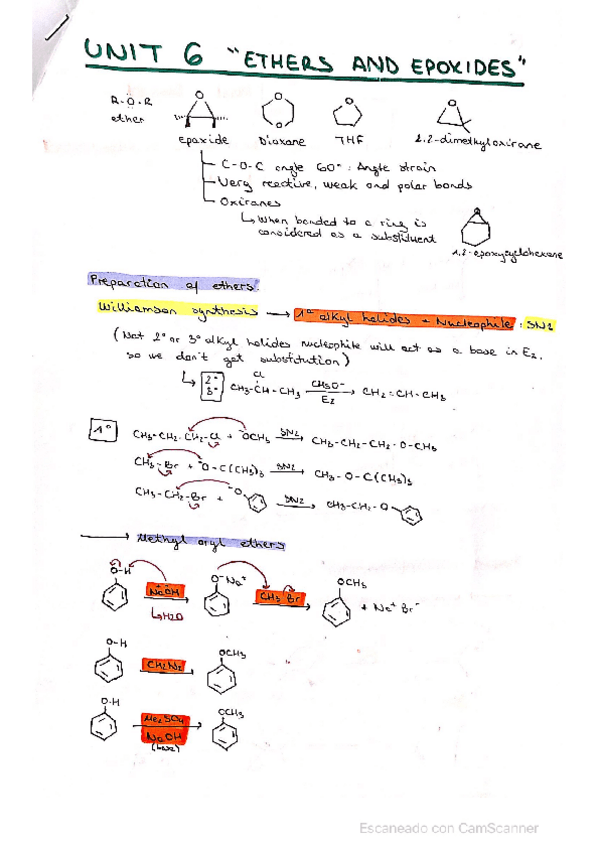 UNIT 6 "ETHERS AND EPOXIDES"
R-Ö-R
ether
O
epoxide
O
O
Dioxane
O
THF
O
2,2-dimethyloxirane
C-O-C angle 60°: Angle strain
Very reactive, weak and polar bonds
Oxiranes
↳ When bonded to a ring is
considered as a substituent
O
1,2-epoxycyclohexane
Preparation of ethers:
Williamson synthesis → 1° alkyl halides + Nucleophile: SN2
(Not 2° or 3° alkyl halides nucleophile will act as a base in E2,
so we don't get substitution)
↳ 2° 3° CH3-CH-CH3 CH3O⁻ E2 → CH2=CH-CH3
Cl
1° CH3-CH2-CH2-Cl + ⁻OCH3 SN2 → CH3-CH2-CH2-O-CH3
CH3-Br + ⁻O-C(CH3)3 SN2 → CH3-O-C(CH3)3
CH3-CH2-Br + ⁻O SN2 → CH3-CH2-O
→ Methyl aryl ethers
O-H NaOH O⁻Na⁺ CH3Br OCH3 + Na⁺Br⁻
↳H2O
O-H CH2N2 OCH3
O-H Me2SO4 OCH3
NaOH
(base)
Escaneado con CamScanner